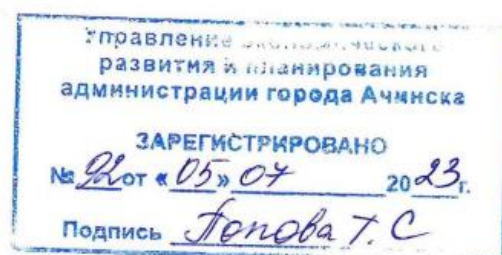 Управление экономического
развития и планирования
администрации города Ачинска
ЗАРЕГИСТРИРОВАНО
№ 92 от «05» 07 2023 г.
Подпись Попова Т. С